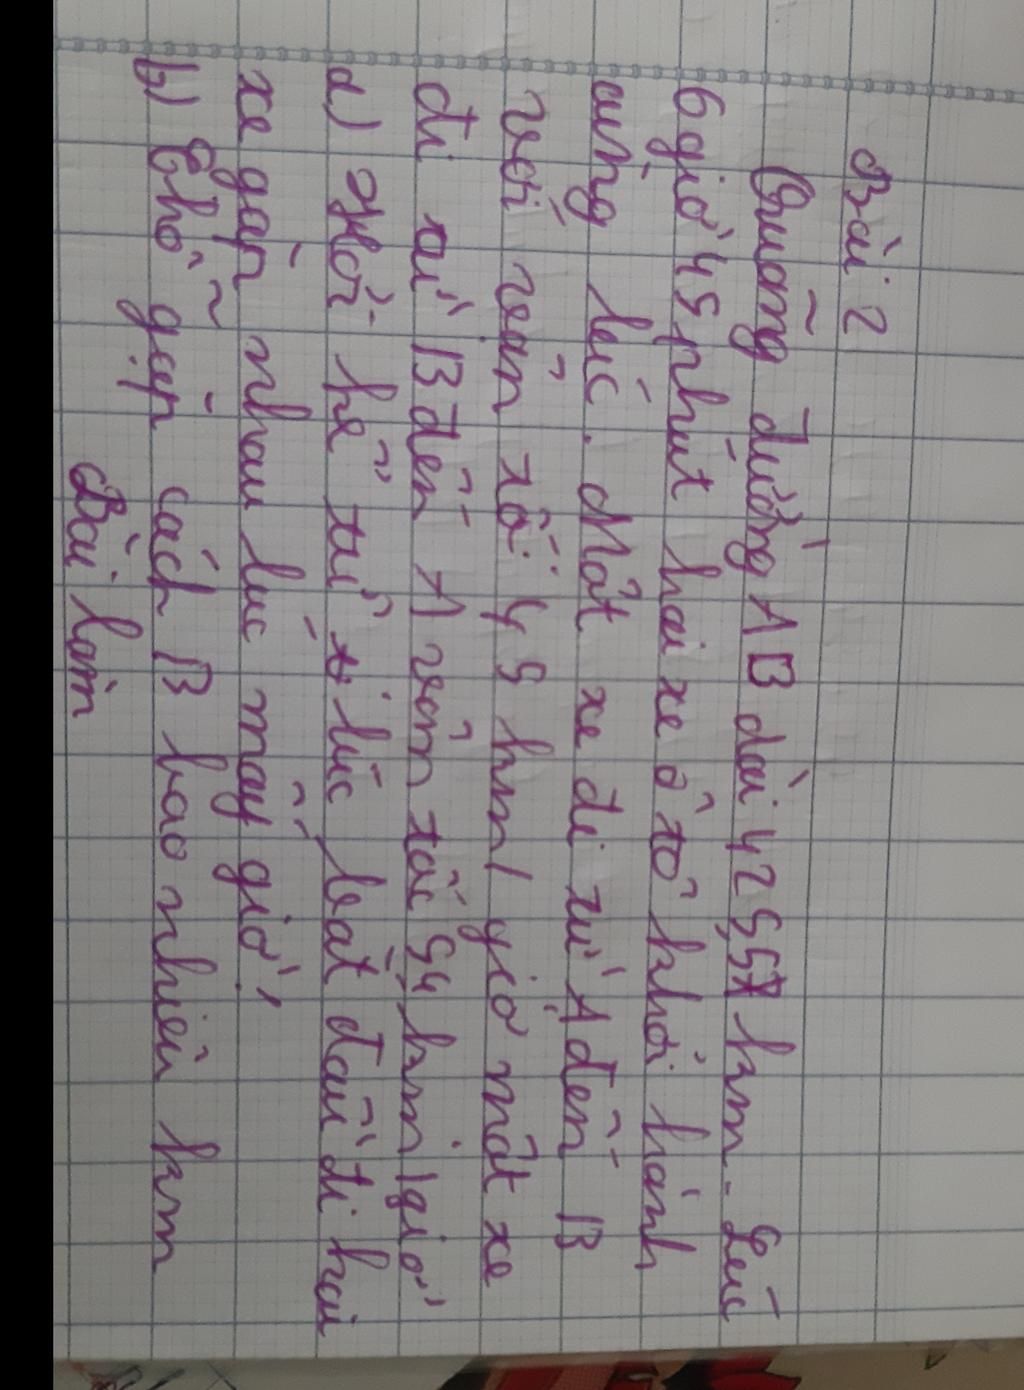 Bài 2
Quãng đường AB dài 42 5,5 km. Lúc
6 giờ 45 phút hai xe ô tô khởi hành
cùng lúc. Một xe đi từ A đến B
với vận tốc 45 km/giờ một xe
đi từ B đến A vận tốc 54 km/giờ
a) Hỏi kể từ lúc bắt đầu đi hai
xe gặp nhau lúc mấy giờ?
b) Chỗ gặp cách B bao nhiêu km
Bài làm